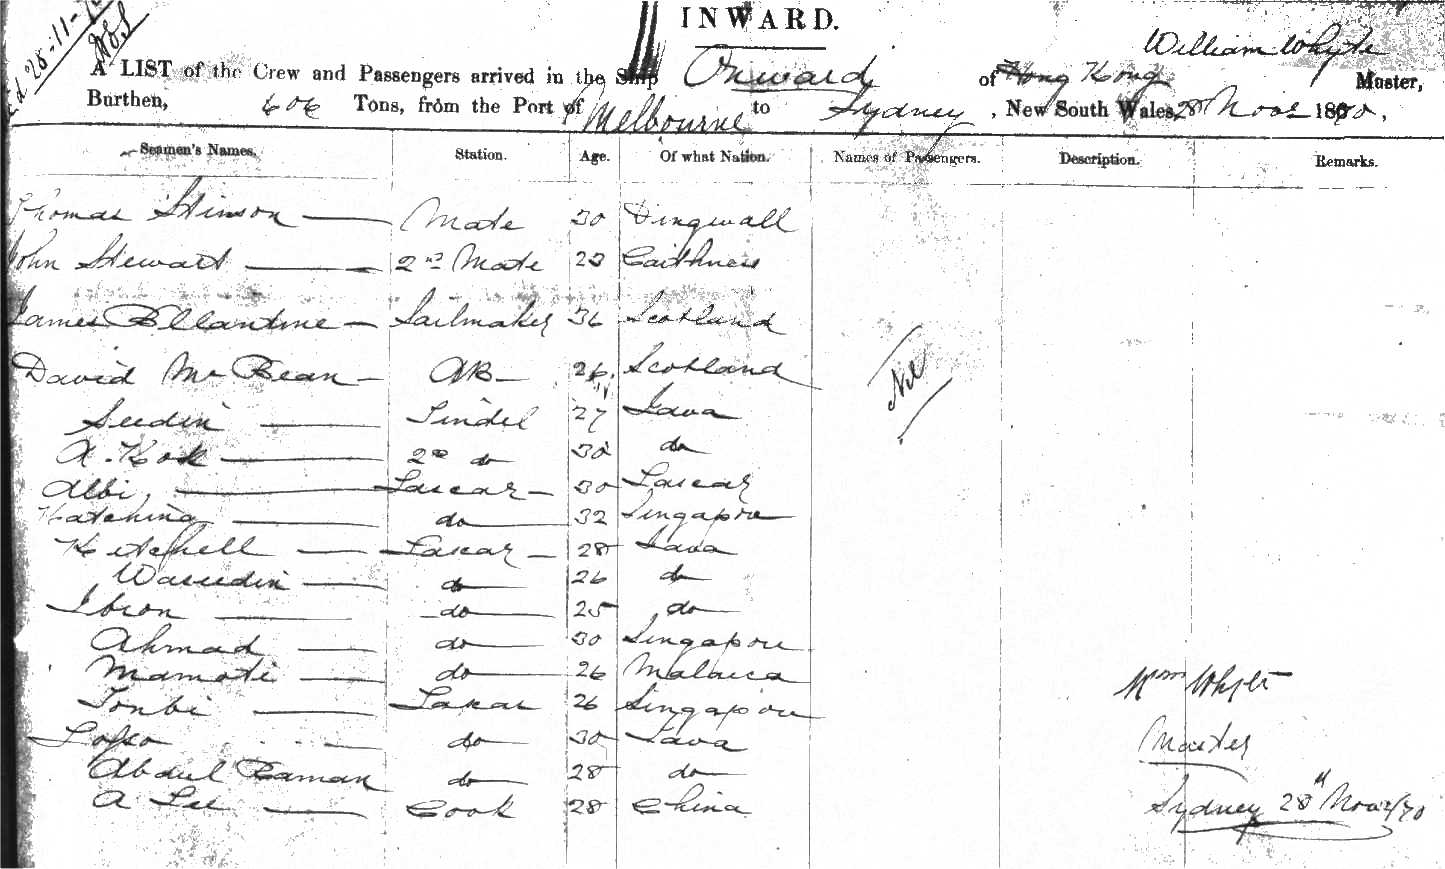 INWARD.
William Whyte
A LIST of the Crew and Passengers arrived in the Ship Onward of Hong Kong Master,
Burthen, 606 Tons, from the Port of Melbourne to Sydney, New South Wales, 28 Novr 1870,
Seamen's Names. Station. Age. Of what Nation. Names of Passengers. Description. Remarks.
Thomas Stinson Mate 30 Dingwall
John Stewart 2nd Mate 23 Caithness
James Ballantine Sailmaker 36 Scotland
David McBean AB 26 Scotland
Nil
Seedin 27 Java
A. Kok 2nd do 30 do
Albi Lascar 30 Lascar
do 32 Singapore
Lascar 28 Java
Waseedin do 26 do
Ibron do 25 do
Ahmad do 30 Singapore
Mamoti do 26 Malacca
Tonbi Lascar 26 Singapore
do 30 Java
Abdul Raman do 28 do
A Lee Cook 28 China
Wm Whyte
Master
Sydney 28th Novr/70